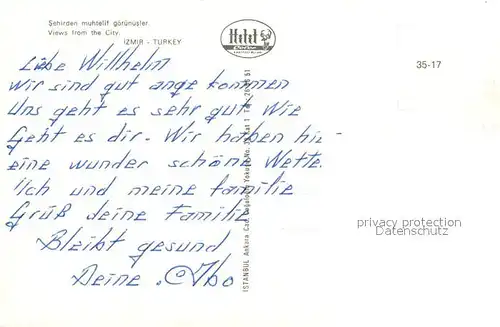 Şehirden muhtelif görünüşler.
Views from the City.
İZMİR - TURKEY
Hitit
Color
35-17
Liebe Willhelm
wir sind gut ange kommen
Uns geht es sehr gut Wie
Geht es dir. Wir haben hie-
eine wunder schöne Wette.
Ich und meine familie
Grüß deine Familie
Bleibt gesund
Deine . Abo
İSTANBUL Ankara Cad.
privacy protection
Datenschutz